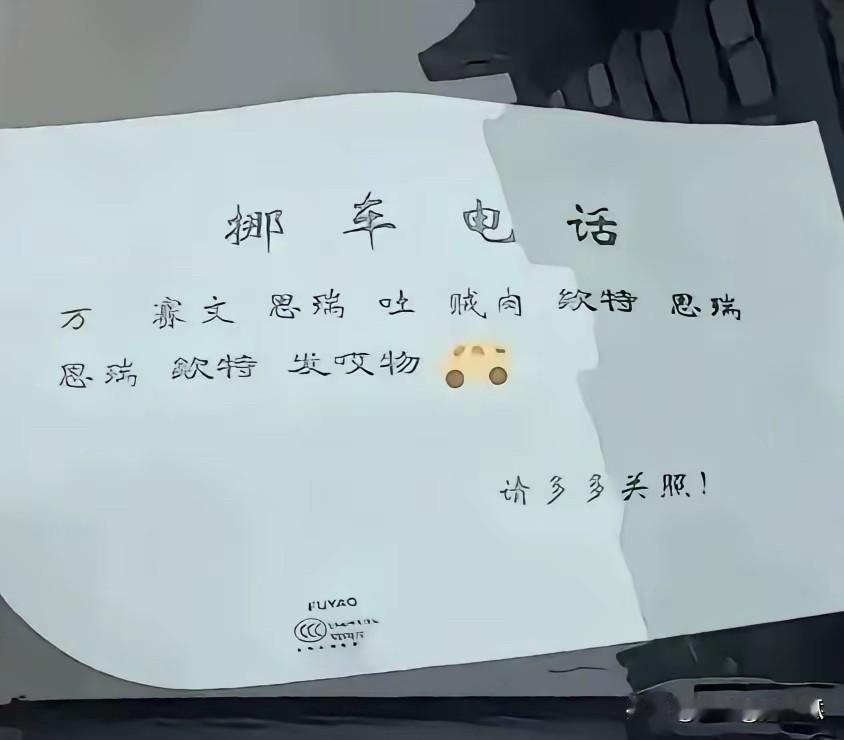 挪车电话
万 赛文 思瑞 吐 贼肉 欸特 思瑞
思瑞 欸特 发哎物
请多多关照!
FUYAO
CCC